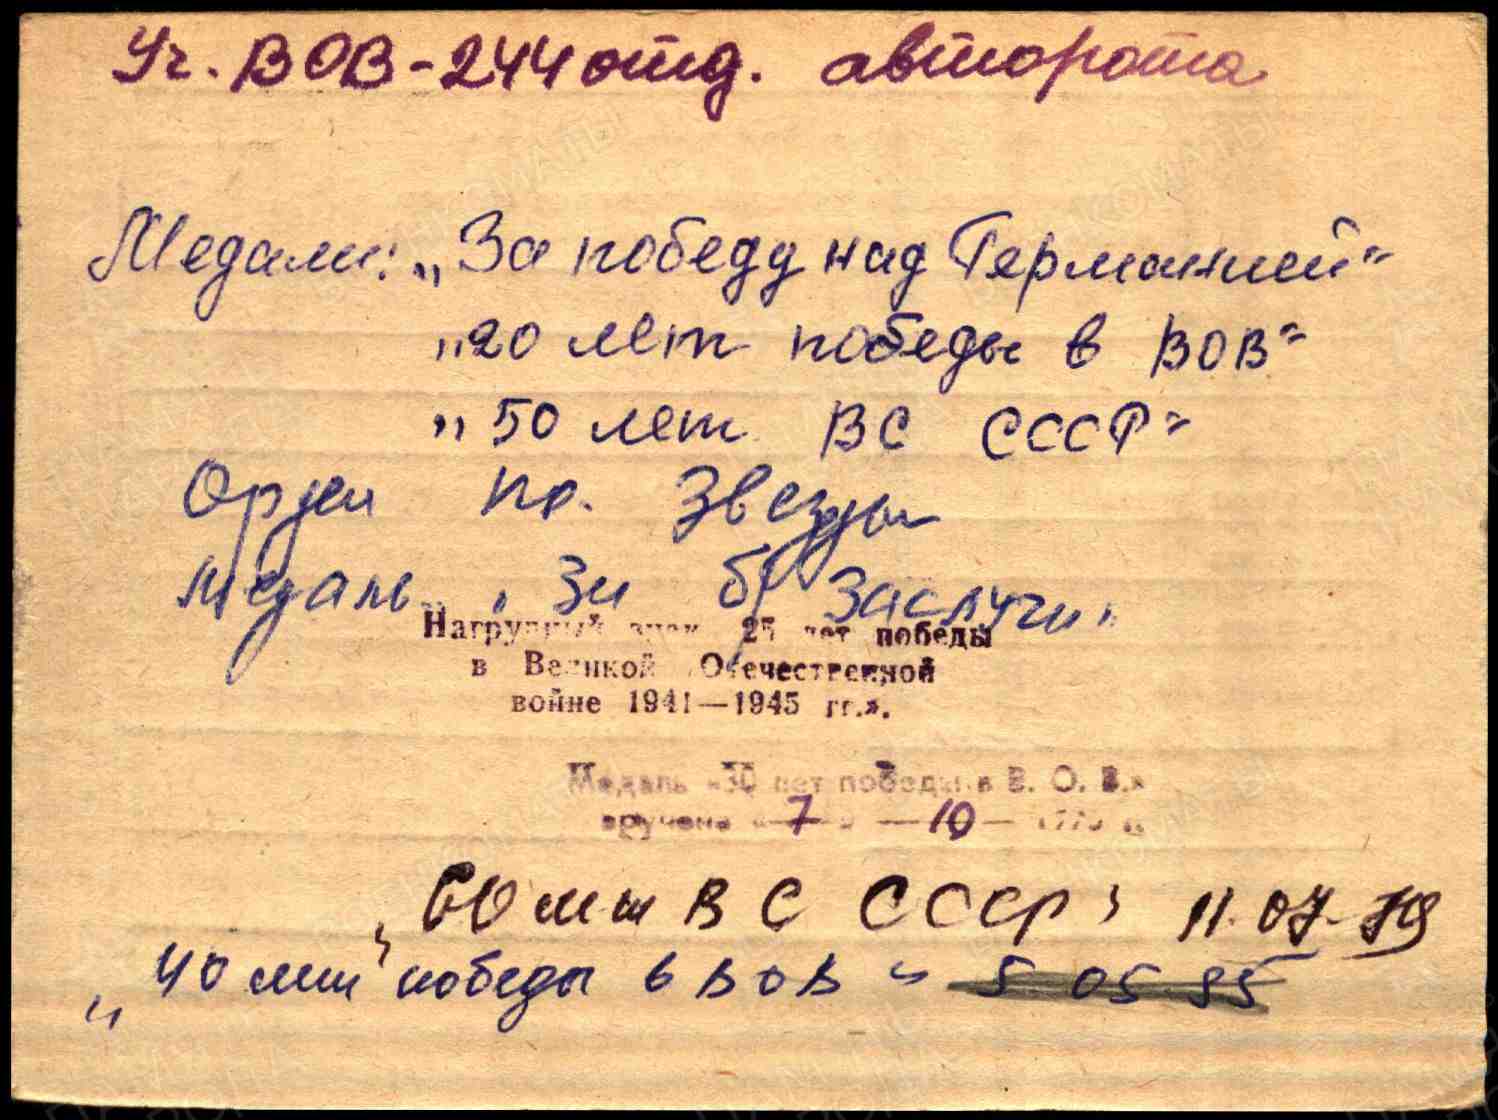 Уч. ВОВ - 244 отд. авторота
Медали: „За победу над Германией"
„20 лет победы в ВОВ"
„50 лет ВС СССР"
Орден Кр. Звезды
Медаль „За б/ заслуги"
Нагрудный знак „25 лет победы
в Великой Отечественной
войне 1941—1945 гг.».
Медаль «30 лет победы в В. О. В.»
вручена « 7 » — 10 —
„60 лет ВС СССР" 11.07.79
„40 лет победы в ВОВ" 5 05 85